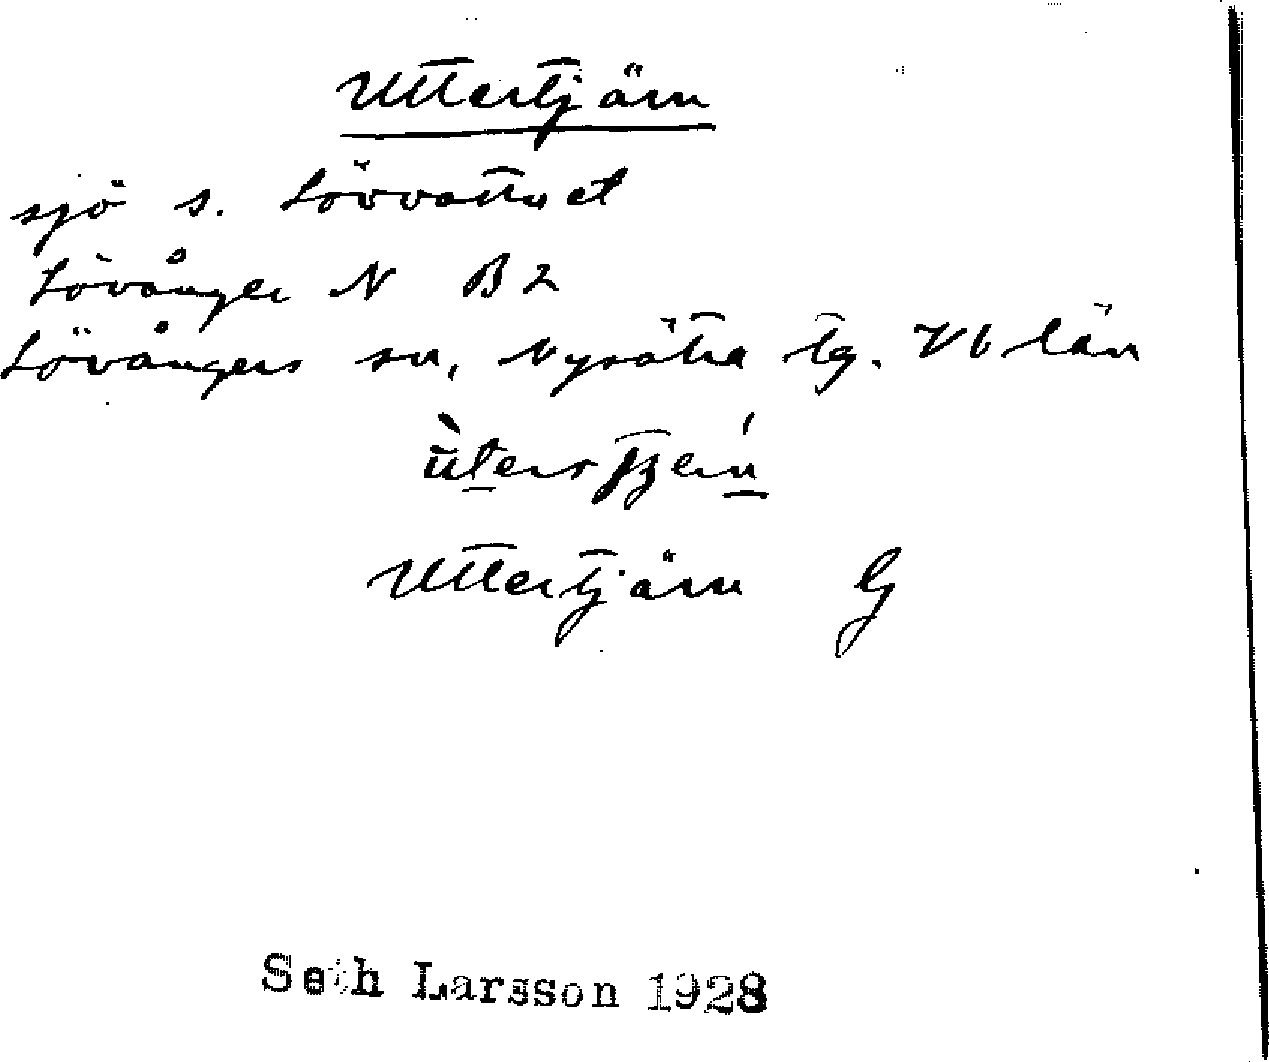 Uttertjärn
sjö s. Lövvattnet
Lövånger N B 2
Lövångers sn, Nysätra tg. Vb län
Uttertjärn G
Seth Larsson 1928